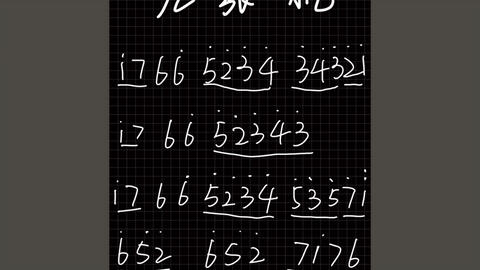 1̇7 66̇ 5̇2̇3̇4̇ 3̇4̇3̇2̇1̇
1̇7 66̇ 5̇2̇3̇4̇3̇
1̇7 66̇ 5̇2̇3̇4̇ 5̇3̇5̇71̇
6̇5̇2̇ 6̇5̇2̇ 71̇76